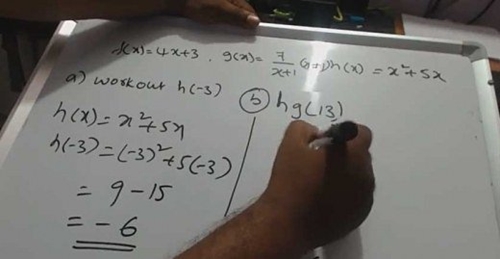 f(x)=4x+3, g(x)= 7/x+1 h(x) = x²+5x
a) workout h(-3)
h(x)=x²+5x
h(-3)=(-3)²+5(-3)
= 9-15
= -6
b) hg(13)